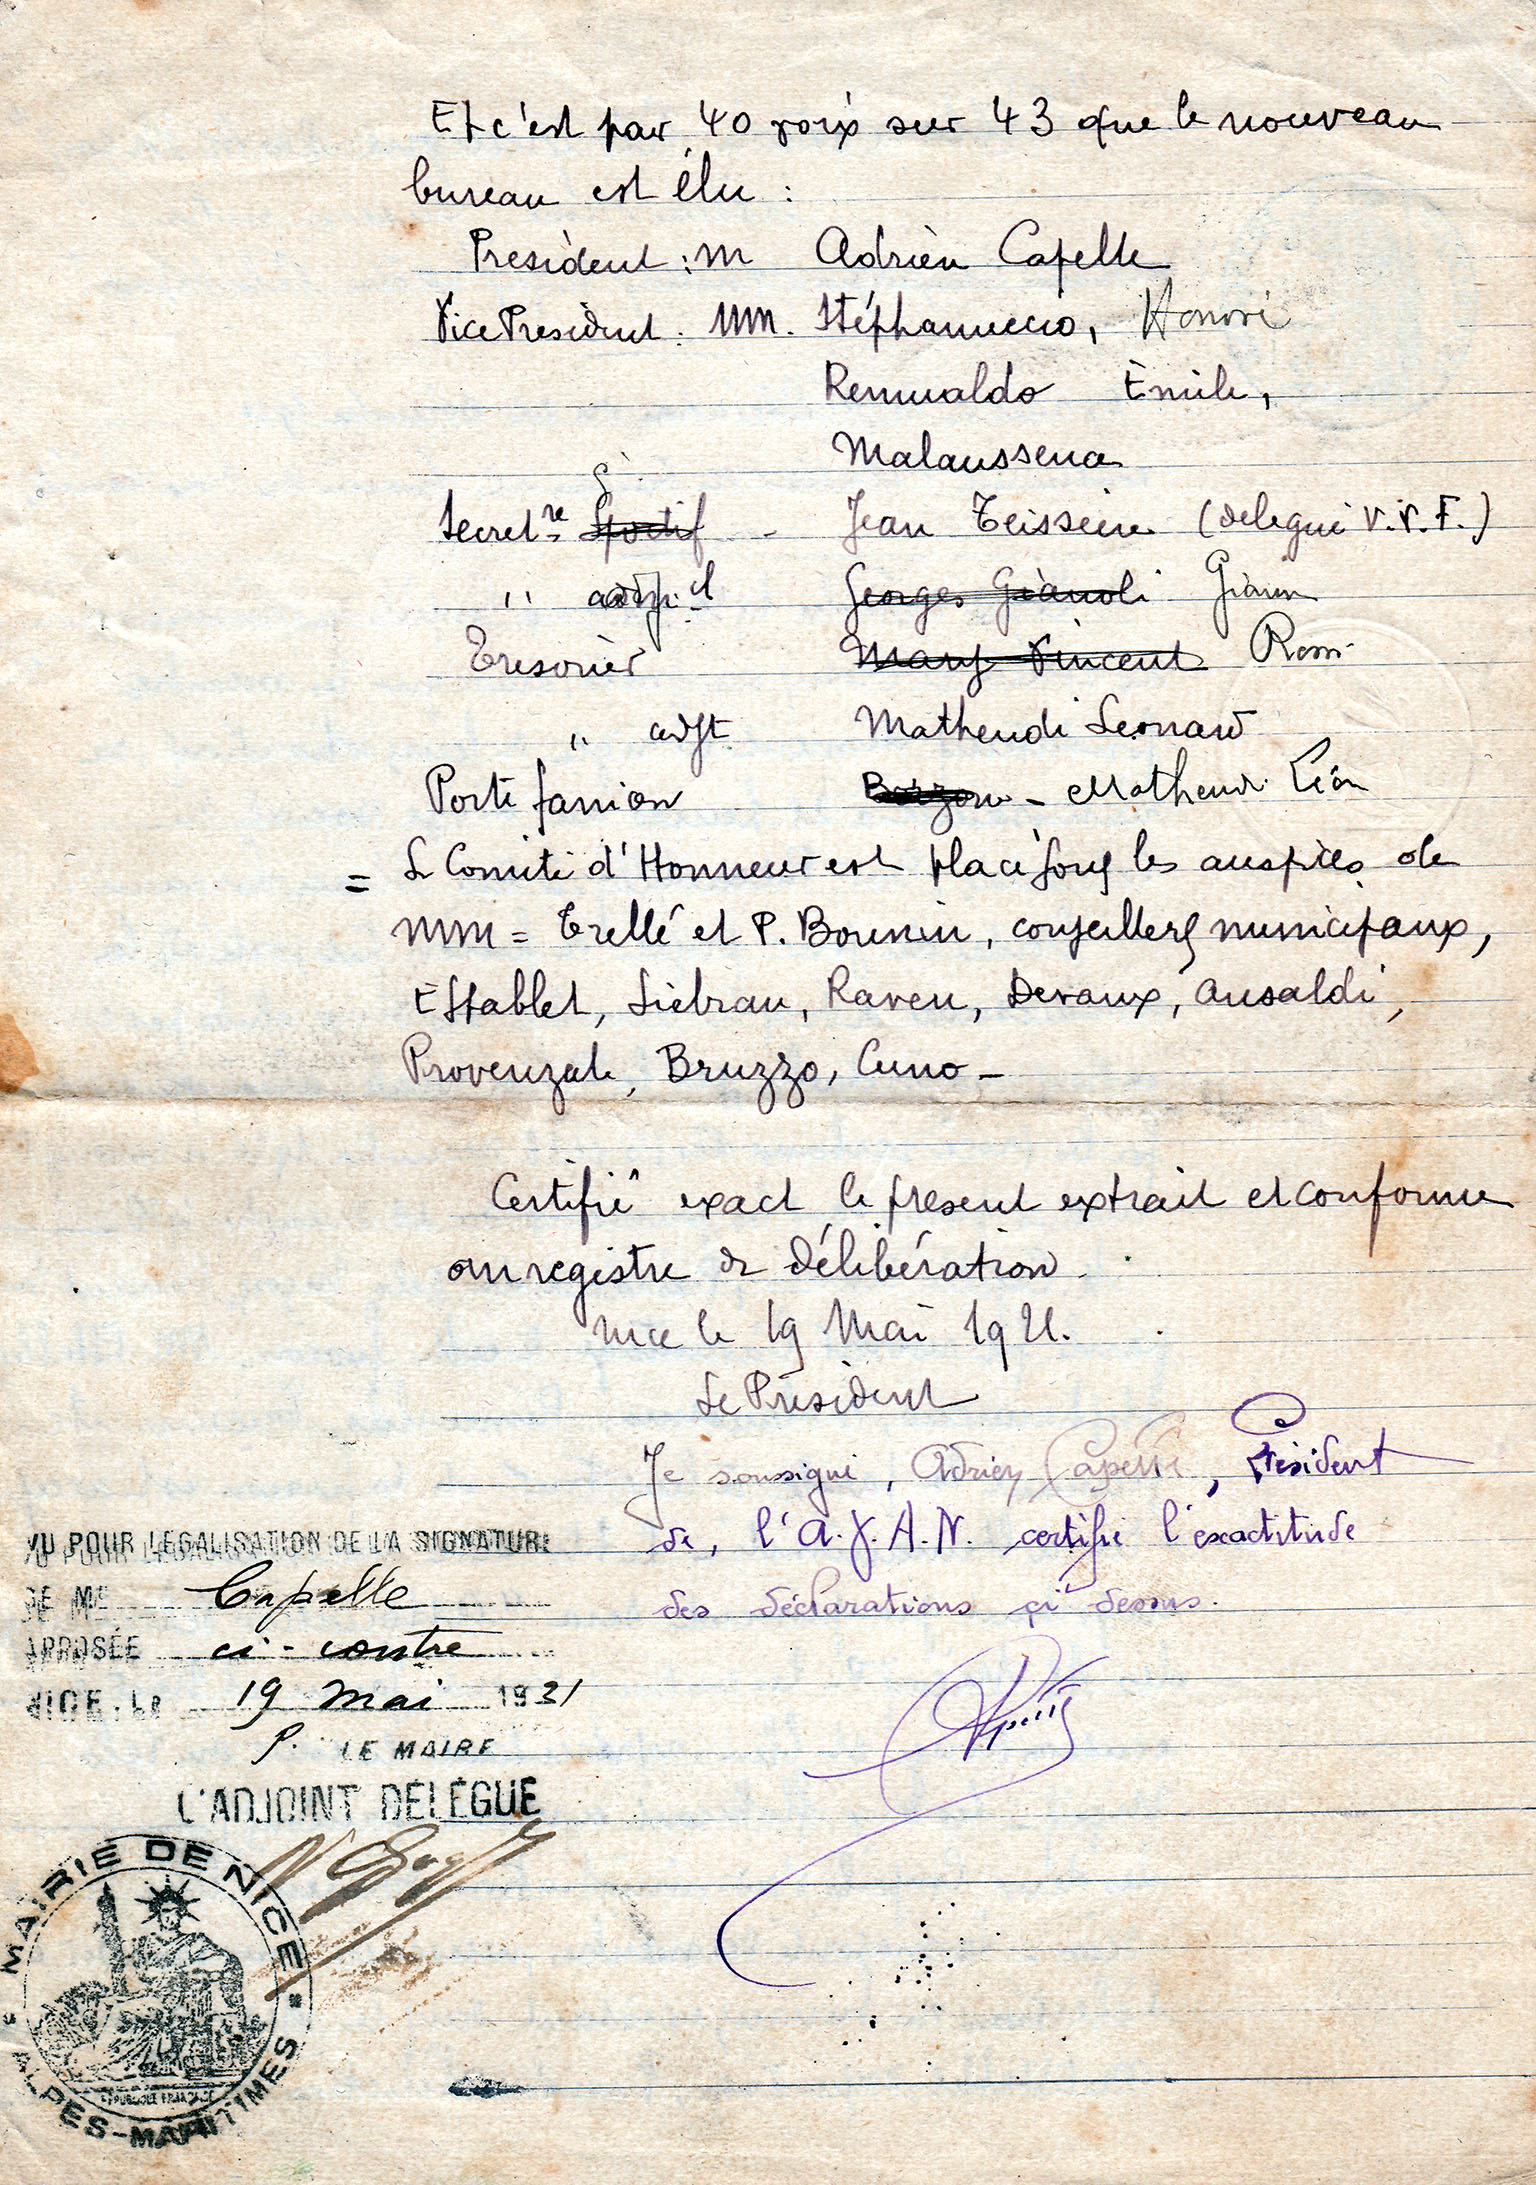 Et c'est par 40 voix sur 43 que le nouveau
bureau est élu :
Président : M Adrien Capelle
Vice Président : MM. Stéphanuccio, Honoré
Remualdo Emile,
Malaussena
Secret.re Sportif - Jean Teisseire (délégué V.V.F.)
" Georges Gianoli Giann
Trésorier Mary Vincent Rossi
" adjt Matheudi Leonard
Porte fanion - Matheudi Léon
= Le Comité d'Honneur est placé sous les auspices de
MM = Trellé et P. Bounin, conseillers municipaux,
Establet, Liébrau, Raven, Devaux, Ansaldi,
Provenzale, Bruzzo, Cuno -
Certifié exact le présent extrait et conforme
au registre de délibération.
Nice le 19 Mai 1921.
Le Président
Je soussigné, Adrien Capelle, Président
de, l'A.J.A.N. certifie l'exactitude
des déclarations çi dessus.
Capelle
VU POUR LEGALISATION DE LA SIGNATURE
DE ME Capelle
APPOSÉE ci-contre
NICE, le 19 mai 1921
P. LE MAIRE
L'ADJOINT DÉLÉGUÉ
MAIRIE DE NICE
ALPES-MARITIMES
RÉPUBLIQUE FRANÇAISE